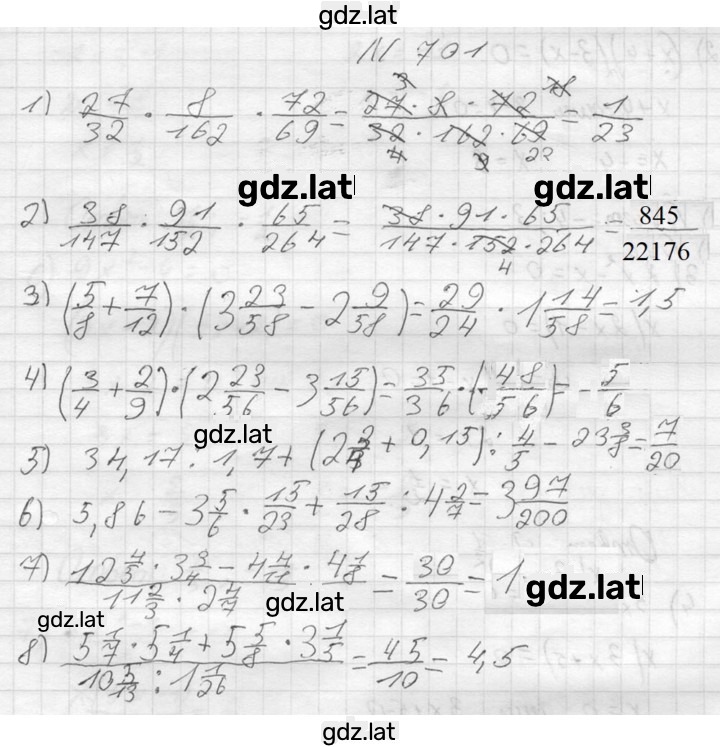 gdz.lat
№ 701
1) 27/32 · 8/162 · 72/69 = 27 · 8 · 72 / 32 · 162 · 69 = 1/23
gdz.lat gdz.lat
2) 38/147 · 91/152 · 65/264 = 38 · 91 · 65 / 147 · 152 · 264 = 845/22176
3) (5/8 + 7/12) · (3 23/58 - 2 9/58) = 29/24 · 1 14/58 = 1,5
4) (3/4 + 2/9) · (2 23/56 - 3 15/56) = 35/36 · (- 48/56) = - 5/6
gdz.lat
5) 34,17 : 1,7 + (2 3/4 + 0,15) : 4/5 - 23 3/8 = 7/20
6) 5,86 - 3 5/6 · 15/23 + 15/28 : 4 2/7 = 3 97/200
7) 12 4/5 · 3 3/4 - 4 4/11 · 4 1/8 / 11 2/3 · 2 4/7 = 30/30 = 1
gdz.lat gdz.lat
gdz.lat
8) 5 1/7 · 5 1/4 + 5 5/8 · 3 1/5 / 10 5/13 : 1 1/26 = 45/10 = 4,5
gdz.lat